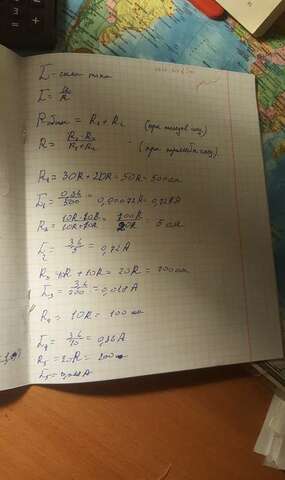 I - сила тока
I = U/R
Rобщ = R₁ + R₂ (при послед соед)
R = R₁·R₂/R₁+R₂ (при паралел соед)
R₁ = 30R + 20R = 50R = 500 ом
I₁ = 0,36/500 =
R₂ = 10R·10R/10R+10R = = 5 ом
I₂ = 3,6/5 = 0,72A
R₃ = 10R + 10R = 20R = 200 ом
I₃ = 3,6/200 = 0,018A
R₄ = 10R = 100 ом
I₄ = 3,6/10 = 0,36A
R₅ = = 200 ом
I₅ = 0,018A